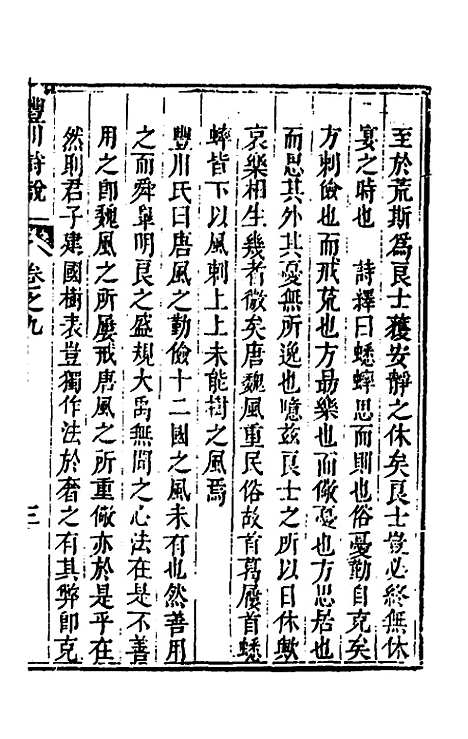 至於荒斯為良士獲安靜之休矣良士豈必終無休
宴之時也　詩釋曰蟋蟀思而則也俗憂勤自克矣
方刺儉也而戒荒也方勗樂也而儆憂也方思居也
而思其外其憂無所逸也噫兹良士之所以日休歟
哀樂相生幾者儆矣唐魏風重民俗故首葛屨首蟋
蟀皆下以風刺上上未能樹之風焉
豐川氏曰唐風之勤儉十二國之風未有也然善用
之而舜臯明良之盛規大禹無間之心法在是不善
用之即魏風之所屢戒唐風之所重儆亦於是乎在
然則君子建國樹表豈獨作法於奢之有其弊即克
豐川詩說
卷之九
三